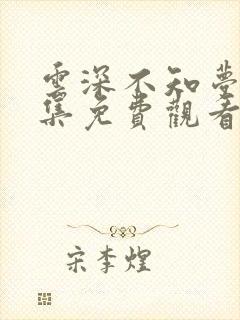 雲深不知夢
集免費觀看
宋李煌